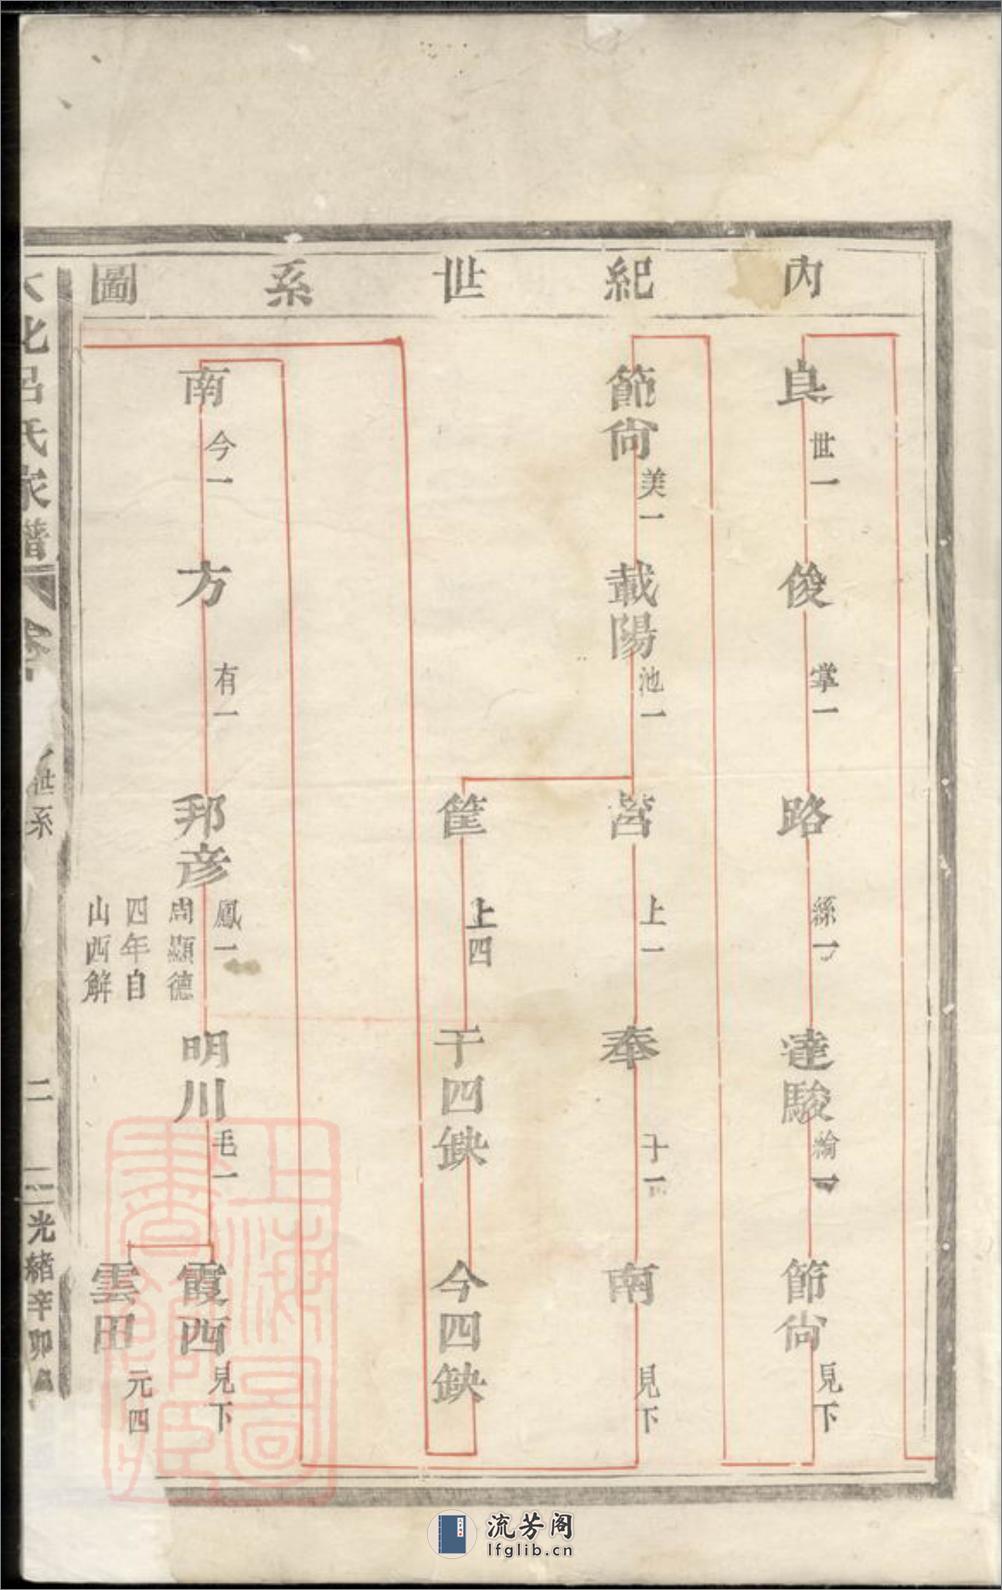 內紀世系圖
良
世一
俊
掌一
路
綵一
達駿
綸一
節尙
見下
節尙
美一
載陽
池一
營
上一
奉
于一
南
見下
筐
上四
于四缺
今四缺
南
今一
方
有一
邦彥
鳳一
周顯德
四年自
山西解
明川
毛一
霞西
見下
雲田
元四
呂氏家譜
世系
二
光緖辛卯
上海圖書館藏
流芳阁
lfglib.cn